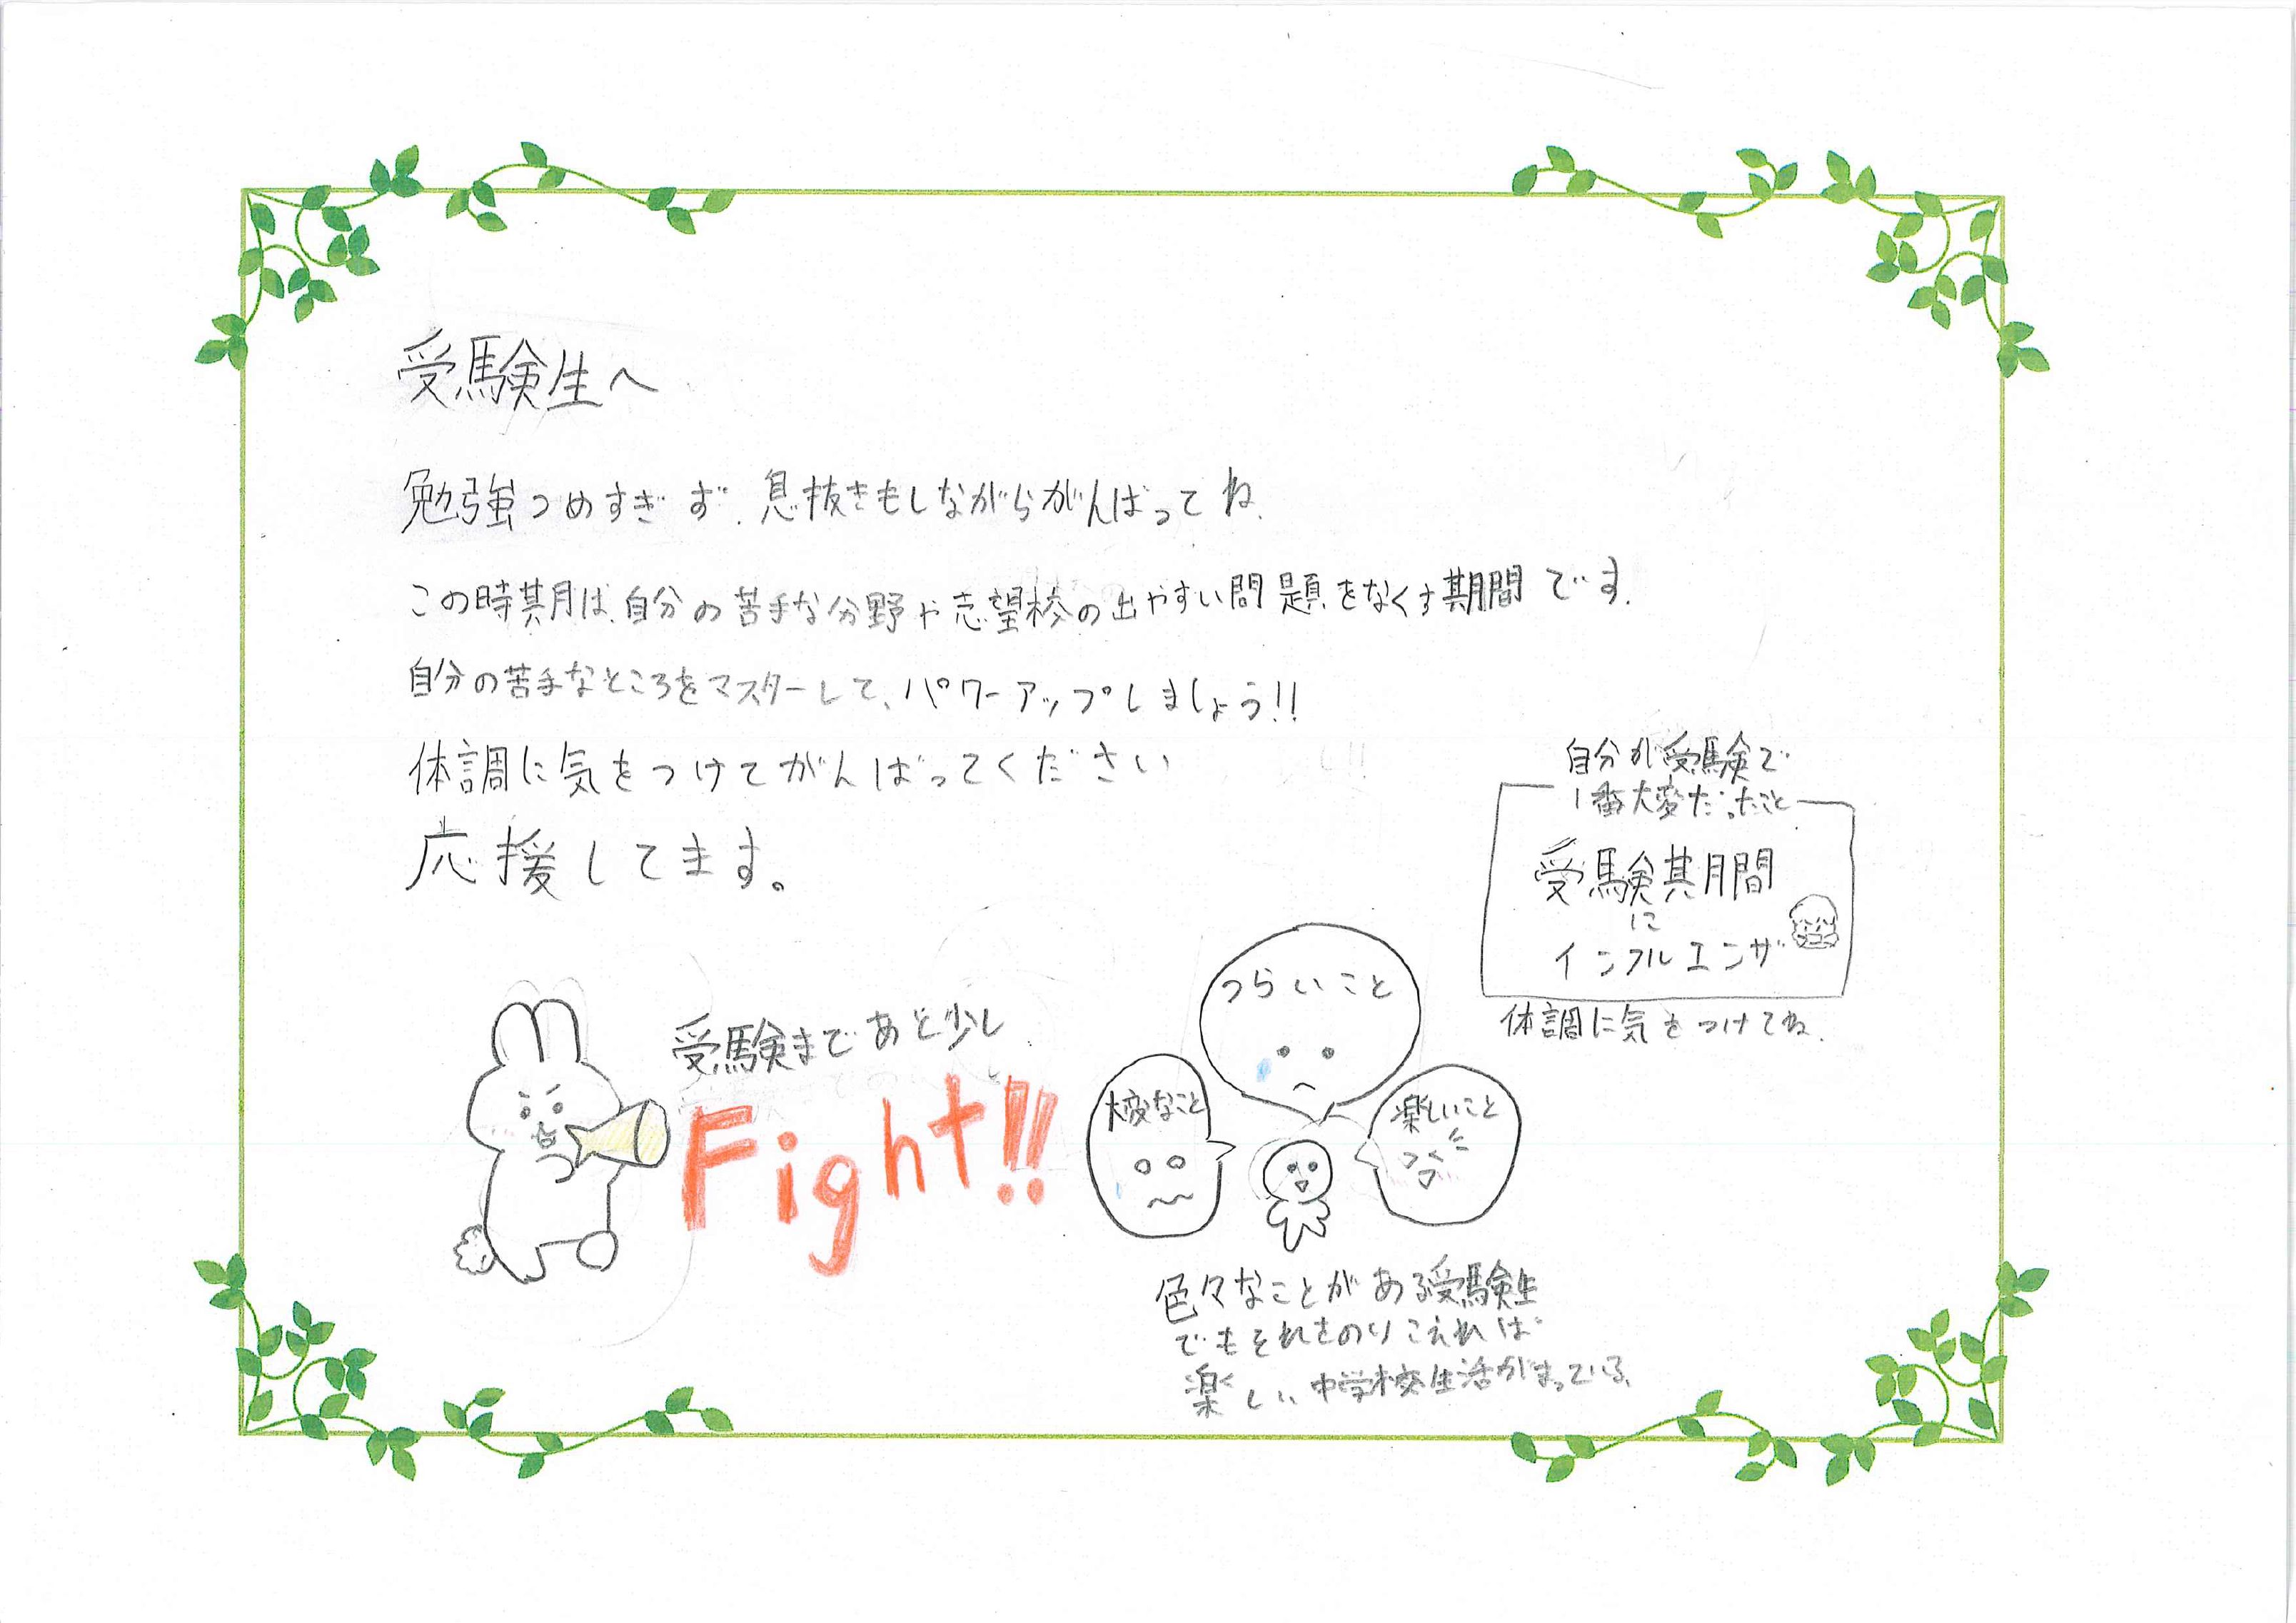 受験生へ
勉強つめすぎず、息抜きもしながらがんばってね。
この時期は、自分の苦手な分野や志望校の出やすい問題をなくす期間です。
自分の苦手なところをマスターして、パワーアップしましょう!!
体調に気をつけてがんばってください
応援してます。
自分が受験で
1番大変だったこと
受験期間
に
インフルエンザ
体調に気をつけてね。
受験まであと少し
Fight!!
つらいこと
大変なこと
楽しいこと
色々なことがある受験生
でもそれをのりこえれば
楽しい中学校生活がまっている。